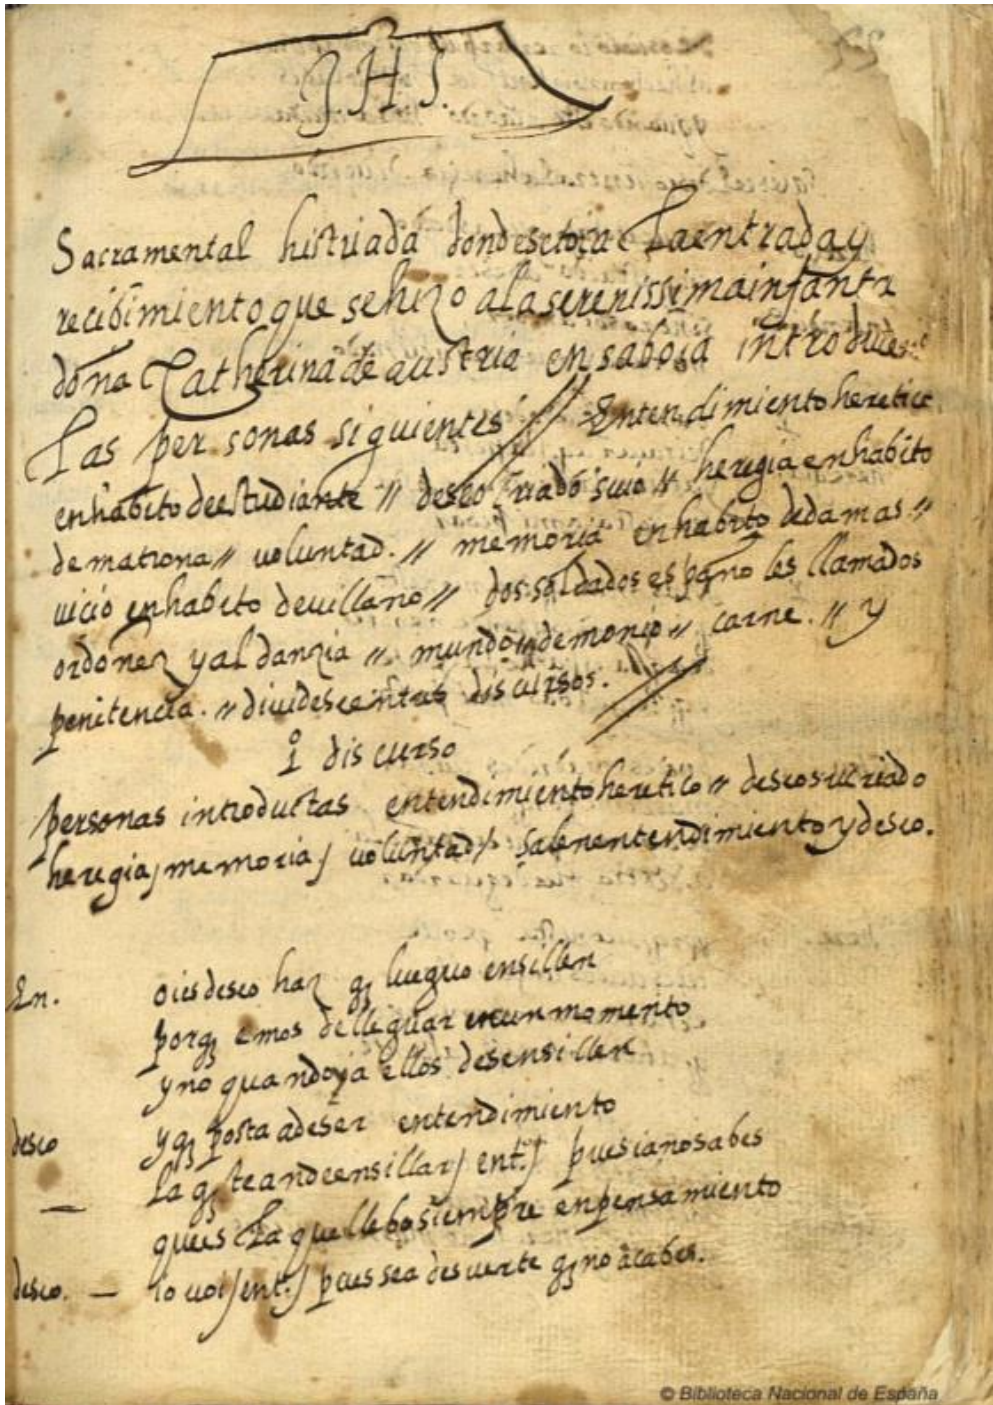 55
J.H.S.
Sacramental histriada dondesetoca La entrada y
recibimiento que sehizo ala serenissima infanta
doña Catherina de austria en saboia introducense
Las personas siguientes // Entendimiento heretico
enhabito de estudiante // deseo criado suio // heregia enhabito
de matrona // voluntad. // memoria enhabito de damas //
vicio enhabito de villano // dos soldados españoles llamados
ordoñez y aldanzia // mundo // demonio // carne. // y
penitencia. // diuidese en tres discursos.
1º discurso
personas introductas entendimiento heretico // deseo su criado
heregia / memoria / voluntad / salen entendimiento y deseo.
En. oies deseo haz q luego ensillen
porq emos de lleguar en un momento
y no quando ya ellos desensillen
deseo y q posta a de ser entendimiento
la q te an de ensillar / entº / pues ia no sabes
ques La que llebo siempre en pensamiento
deseo. — io voi / entº / pues sea de suerte q no acabes.
© Biblioteca Nacional de España